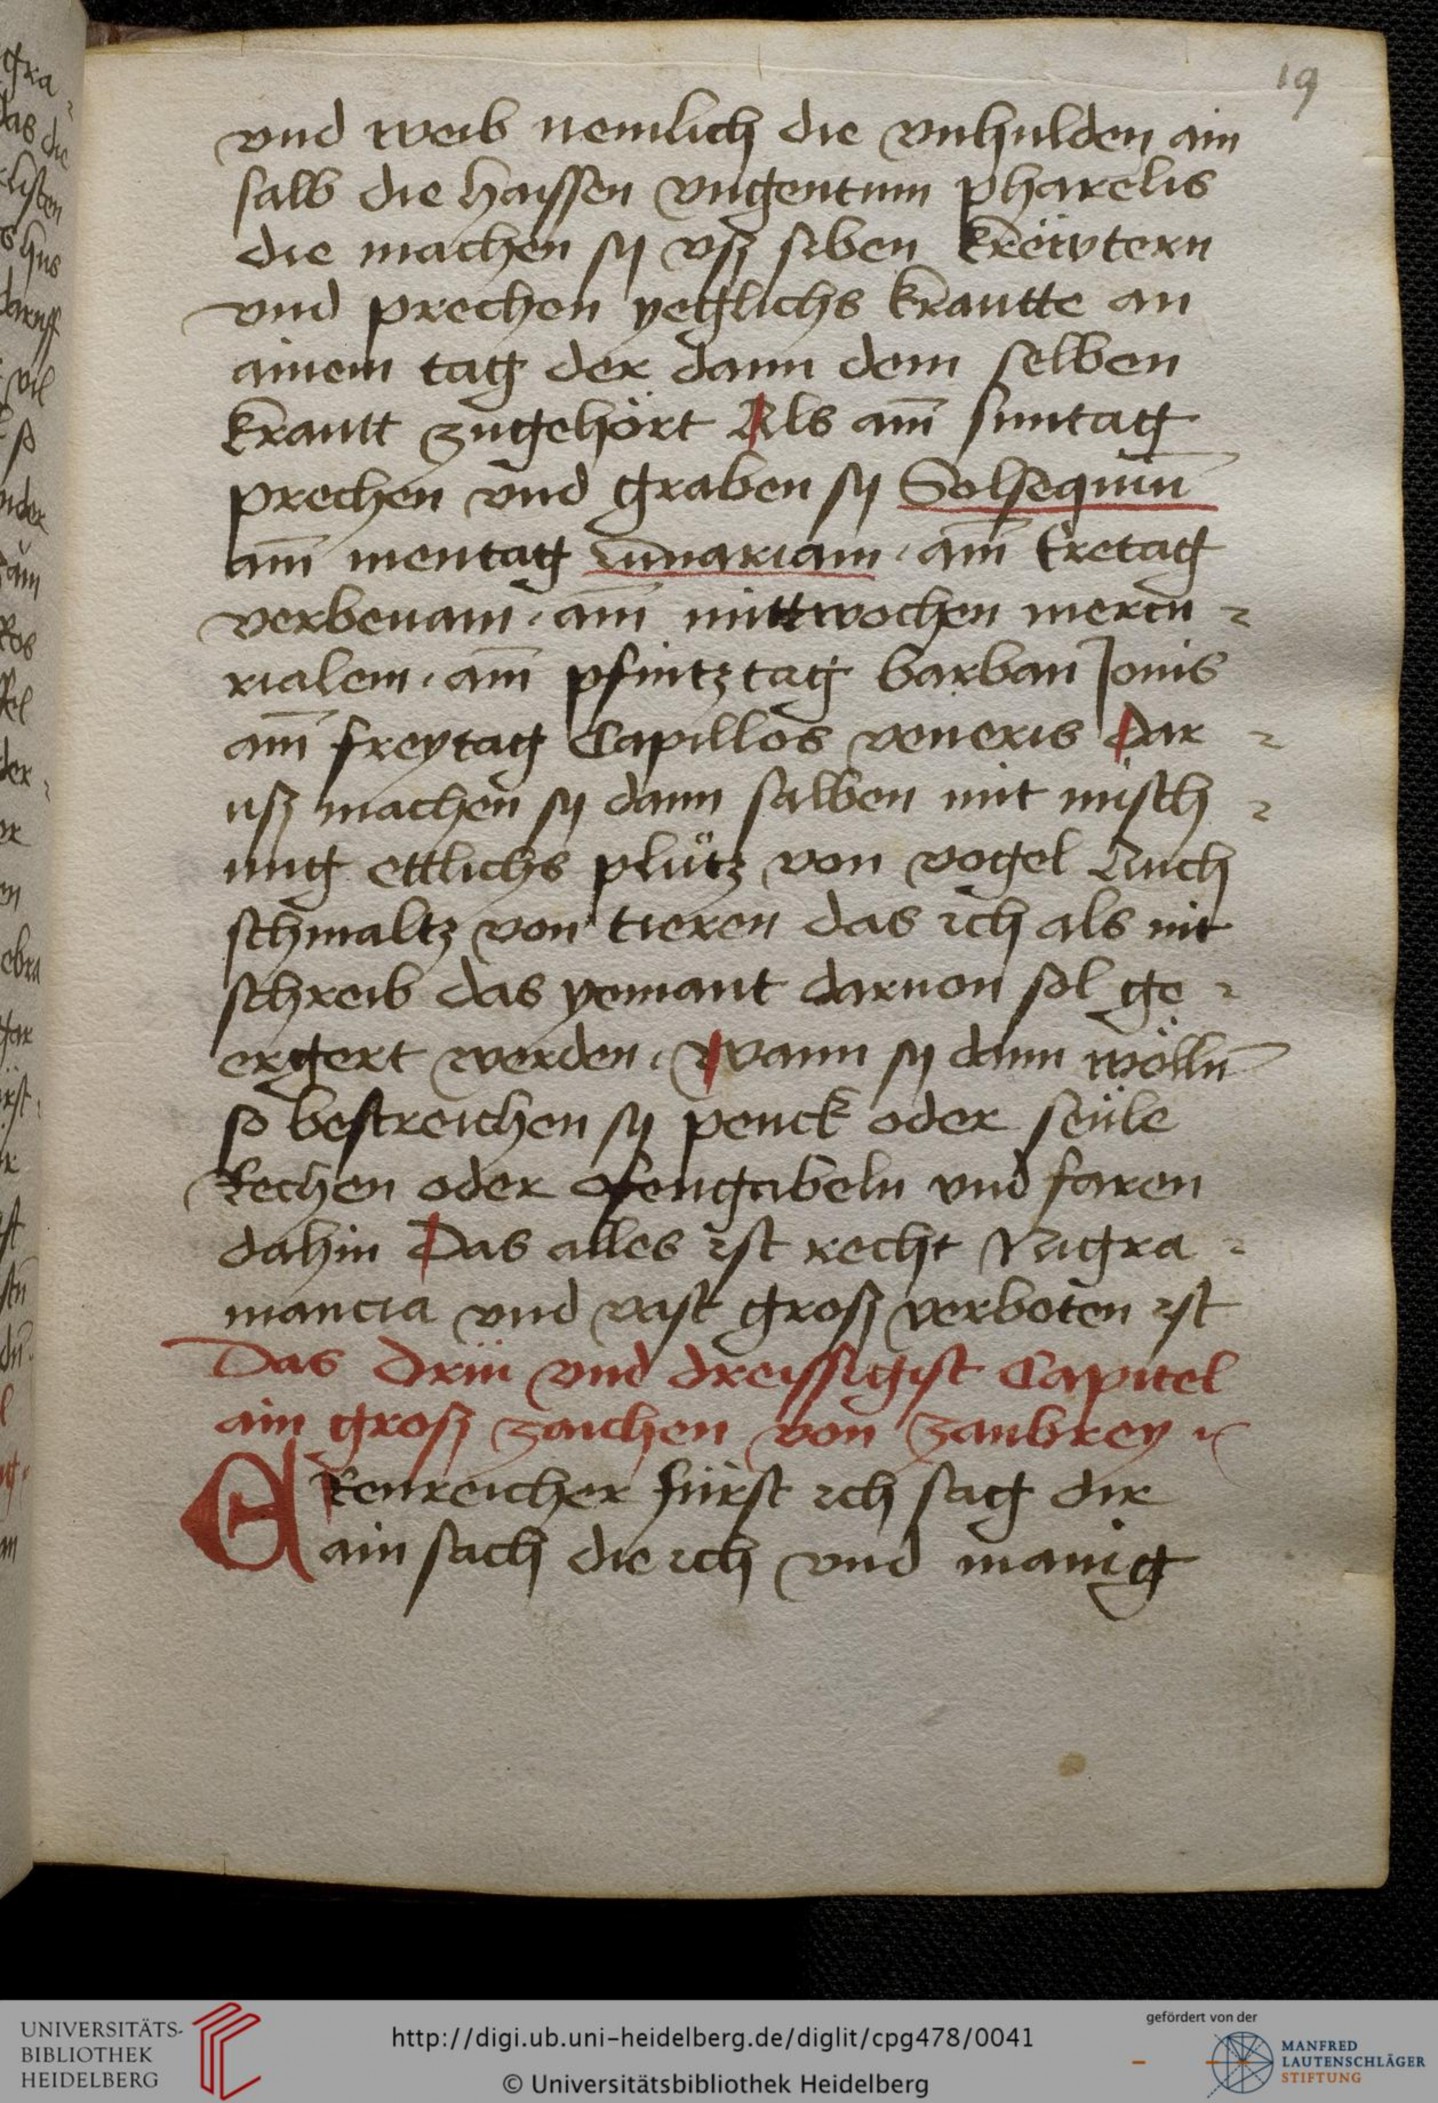 19
vnd weib nemlich die vnhulden ain
salb die haissen vngentum pharelis
die machen sÿ vsz siben krëwtern
vnd prechen yeglichs krautte an
ainem tag der dann dem selben
krautt zůgehört Als am̄ suntag
prechen vnd graben sÿ Solsequiu̅
am̄ mentag Lunariam · am̄ Eretag
verbenam · am̄ mittwochen mercu⸗
rialem · am̄ pfintztag barbau Jouis
am̄ freytag Capillos veneris Dar⸗
usz machen sÿ dann salben mit misch⸗
ung ettlichs plůtz von vogel Auch
schmaltz von tieren das ich als nit
schreib das yemant daruon sol ge⸗
ergert werden · Wann sÿ dann wölln̄
so bestreichen sÿ penck oder seüle
Rechen oder ofengabeln vnd faren
dahin Das alles ist recht Nigra⸗
mancia vnd vast grosz verboten ist
Das drüi vnd dreissigist Capitel
ain grosz zaichen von zaubrey
ERenreicher fürst ich sag dir
ain sach die ich vnd manig
UNIVERSITÄTS-
BIBLIOTHEK
HEIDELBERG
http://digi.ub.uni-heidelberg.de/diglit/cpg478/0041
© Universitätsbibliothek Heidelberg
gefördert von der
MANFRED
LAUTENSCHLÄGER
STIFTUNG